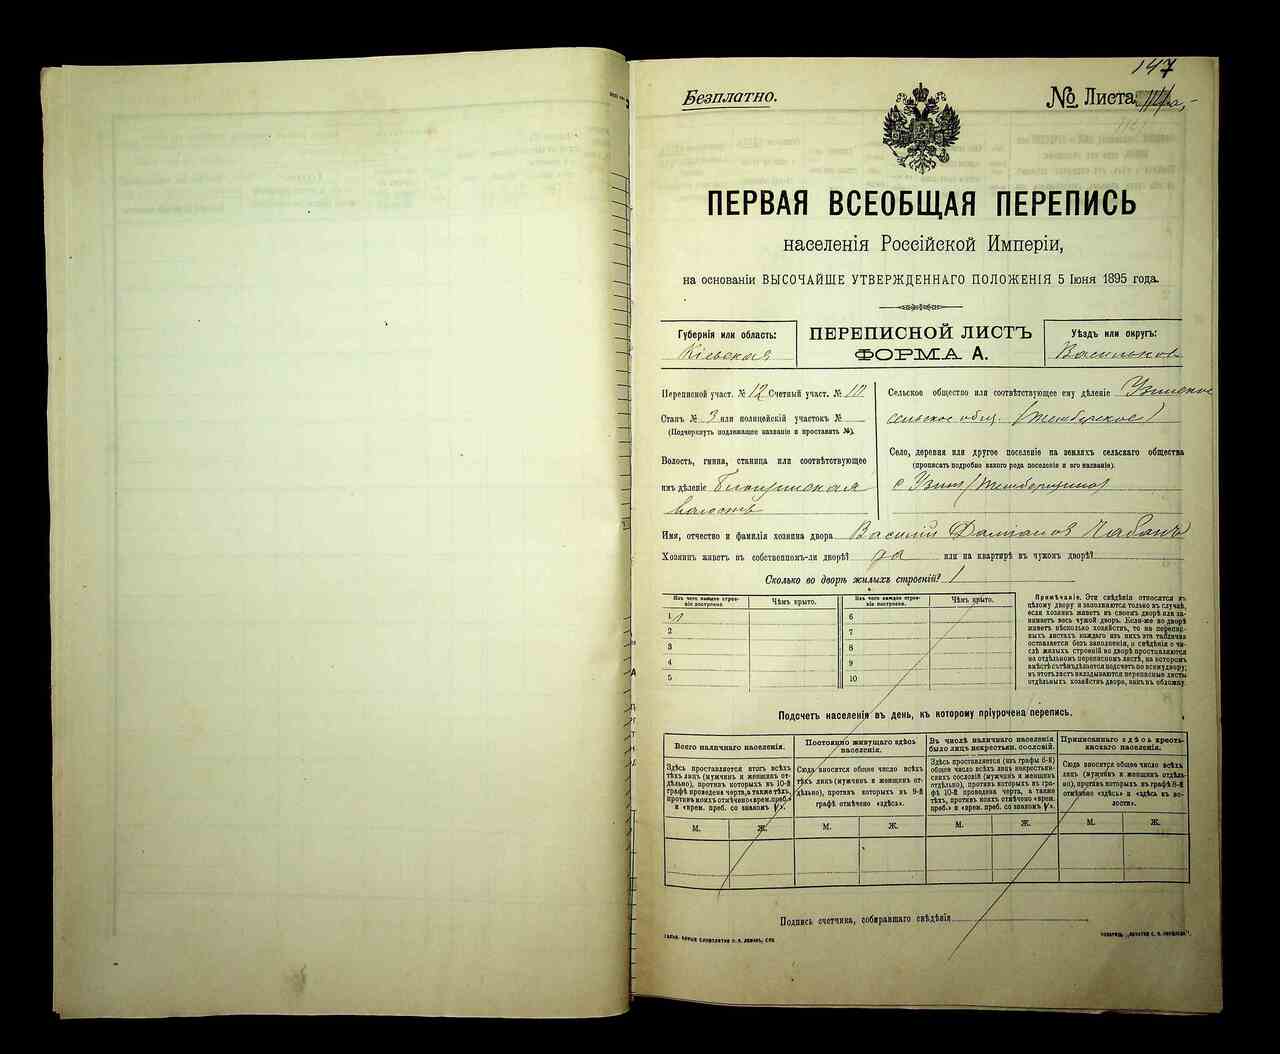 147
Безплатно.
№ Листа
ПЕРВАЯ ВСЕОБЩАЯ ПЕРЕПИСЬ
населенія Россійской Имперіи,
на основаніи ВЫСОЧАЙШЕ УТВЕРЖДЕННАГО ПОЛОЖЕНІЯ 5 Іюня 1895 года.
Губернія или область:
Кіевская
ПЕРЕПИСНОЙ ЛИСТЪ
ФОРМА А.
Уѣздъ или округъ:
Васильков
Переписной участ. № 12 Счетный участ. № 10
Станъ № 3 или полицейскій участокъ №
(Подчеркнуть подлежащее названіе и проставить №).
Волость, гмина, станица или соотвѣтствующее
имъ дѣленіе
волость
Сельское общество или соотвѣтствующее ему дѣленіе Узинское
сельское общ. (Темберское)
Село, деревня или другое поселеніе на земляхъ сельскаго общества
(прописать подробно какого рода поселеніе и его названіе).
с Узин (Темберщина)
Имя, отчество и фамилія хозяина двора Василій Даміанов Чабанъ
Хозяинъ живетъ въ собственномъ-ли дворѣ? да или на квартирѣ въ чужомъ дворѣ?
Сколько во дворѣ жилыхъ строеній? 1
Изъ чего каждое строеніе построено.
Чѣмъ крыто.
Изъ чего каждое строеніе построено.
Чѣмъ крыто.
1
2
3
4
5
6
7
8
9
10
Примѣчаніе. Эти свѣдѣнія относятся къ
цѣлому двору и заполняются только въ случаѣ,
если хозяинъ живетъ въ своемъ дворѣ или занимаетъ
весь чужой дворъ. Если-же во дворѣ
живетъ нѣсколько хозяйствъ, то на переписныхъ
листахъ каждаго изъ нихъ эта табличка
оставляется безъ заполненія, а свѣдѣнія о числѣ
жилыхъ строеній во дворѣ проставляются
на отдѣльномъ переписномъ листѣ, на которомъ
вмѣстѣ съ тѣмъ дѣлается подсчетъ по всему двору;
въ этотъ листъ вкладываются переписные листы
отдѣльныхъ хозяйствъ двора, какъ въ обложку.
Подсчетъ населенія въ день, къ которому пріурочена перепись.
Всего наличнаго населенія.
Здѣсь проставляется итогъ всѣхъ
тѣхъ лицъ (мужчинъ и женщинъ отдѣльно),
противъ которыхъ въ 10-й
графѣ проведена черта, а также тѣхъ,
противъ коихъ отмѣчено «врем. преб.»
и «врем. преб. со знакомъ V».
Постоянно живущаго здѣсь
населенія.
Сюда вносится общее число всѣхъ
тѣхъ лицъ (мужчинъ и женщинъ отдѣльно),
противъ которыхъ въ 9-й
графѣ отмѣчено «здѣсь».
Въ числѣ наличнаго населенія
было лицъ некрестьян. сословій.
Здѣсь проставляется (изъ графы 6-й)
общее число всѣхъ лицъ некрестьянскихъ
сословій (мужчинъ и женщинъ
отдѣльно), противъ которыхъ въ графѣ
10-й проведена черта, а также
тѣхъ, противъ коихъ отмѣчено «врем.
преб.» и «врем. преб. со знакомъ V».
Приписаннаго здѣсь крестьянскаго
населенія.
Сюда вносится общее число всѣхъ
лицъ (мужчинъ и женщинъ отдѣльно),
противъ которыхъ въ графѣ 8-й
отмѣчено «здѣсь» и «здѣсь въ волости».
М. Ж. М. Ж. М. Ж. М. Ж.
Подпись счетчика, собиравшаго свѣдѣнія